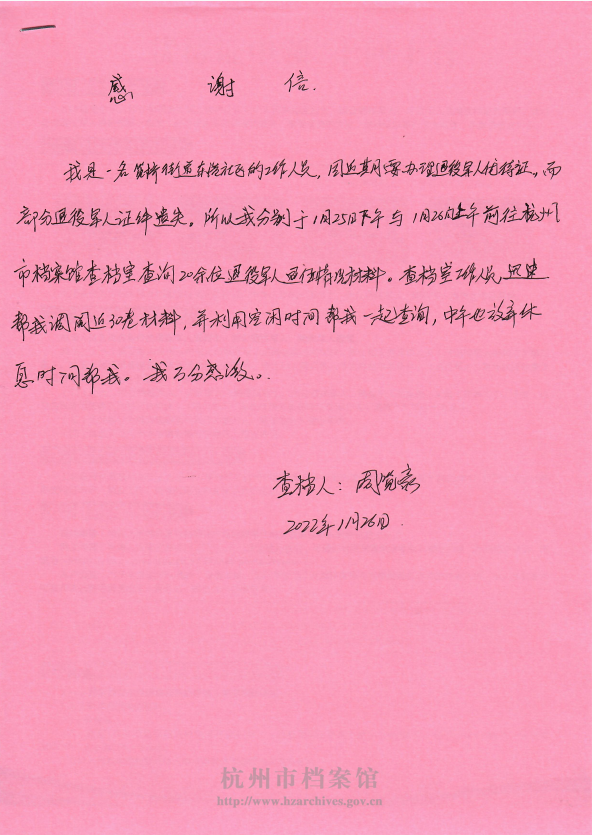 感谢信.
我是一名笕桥街道东港社区的工作人员,因近期需要办理退役军人优待证。而
部分退役军人证件遗失。所以我分别于1月25日下午与1月26日上午前往杭州
市档案馆查档室查询20余位退役军人退伍情况材料。查档室工作人员,迅速
帮我调阅近30卷材料,并利用空闲时间帮我一起查询,中午也放弃休
息时间帮我。我万分感激。
查档人:周
2022年1月26日.
杭州市档案馆
http://www.hzarchives.gov.cn